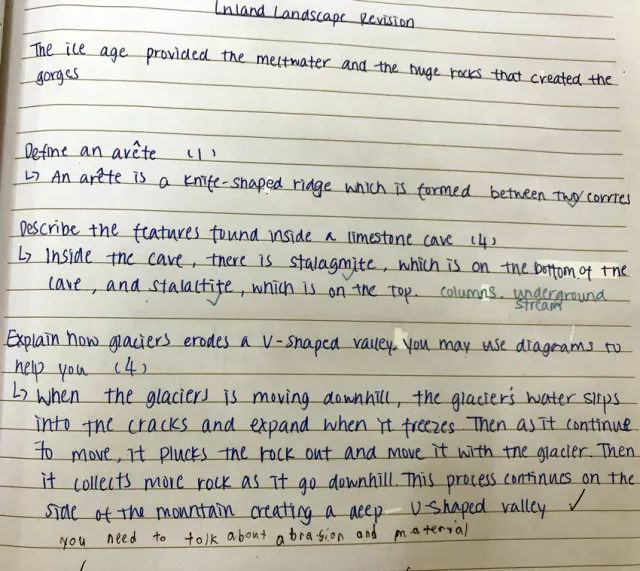 Inland Landscape Revision
The ice age provided the meltwater and the huge rocks that created the
gorges
Define an arête (1)
↳ An arête is a knife-shaped ridge which is formed between two corries
Describe the features found inside a limestone cave (4)
↳ Inside the cave, there is stalagmite, which is on the bottom of the
cave, and stalactite, which is on the top. columns. underground
stream
Explain how glaciers erodes a V-shaped valley. You may use diagrams to
help you (4)
↳ When the glaciers is moving downhill, the glacier's water slips
into the cracks and expand when it freezes. Then as it continue
to move, it plucks the rock out and move it with the glacier. Then
it collects more rock as it go downhill. This process continues on the
side of the mountain creating a deep U-shaped valley ✓
you need to talk about abrasion and material